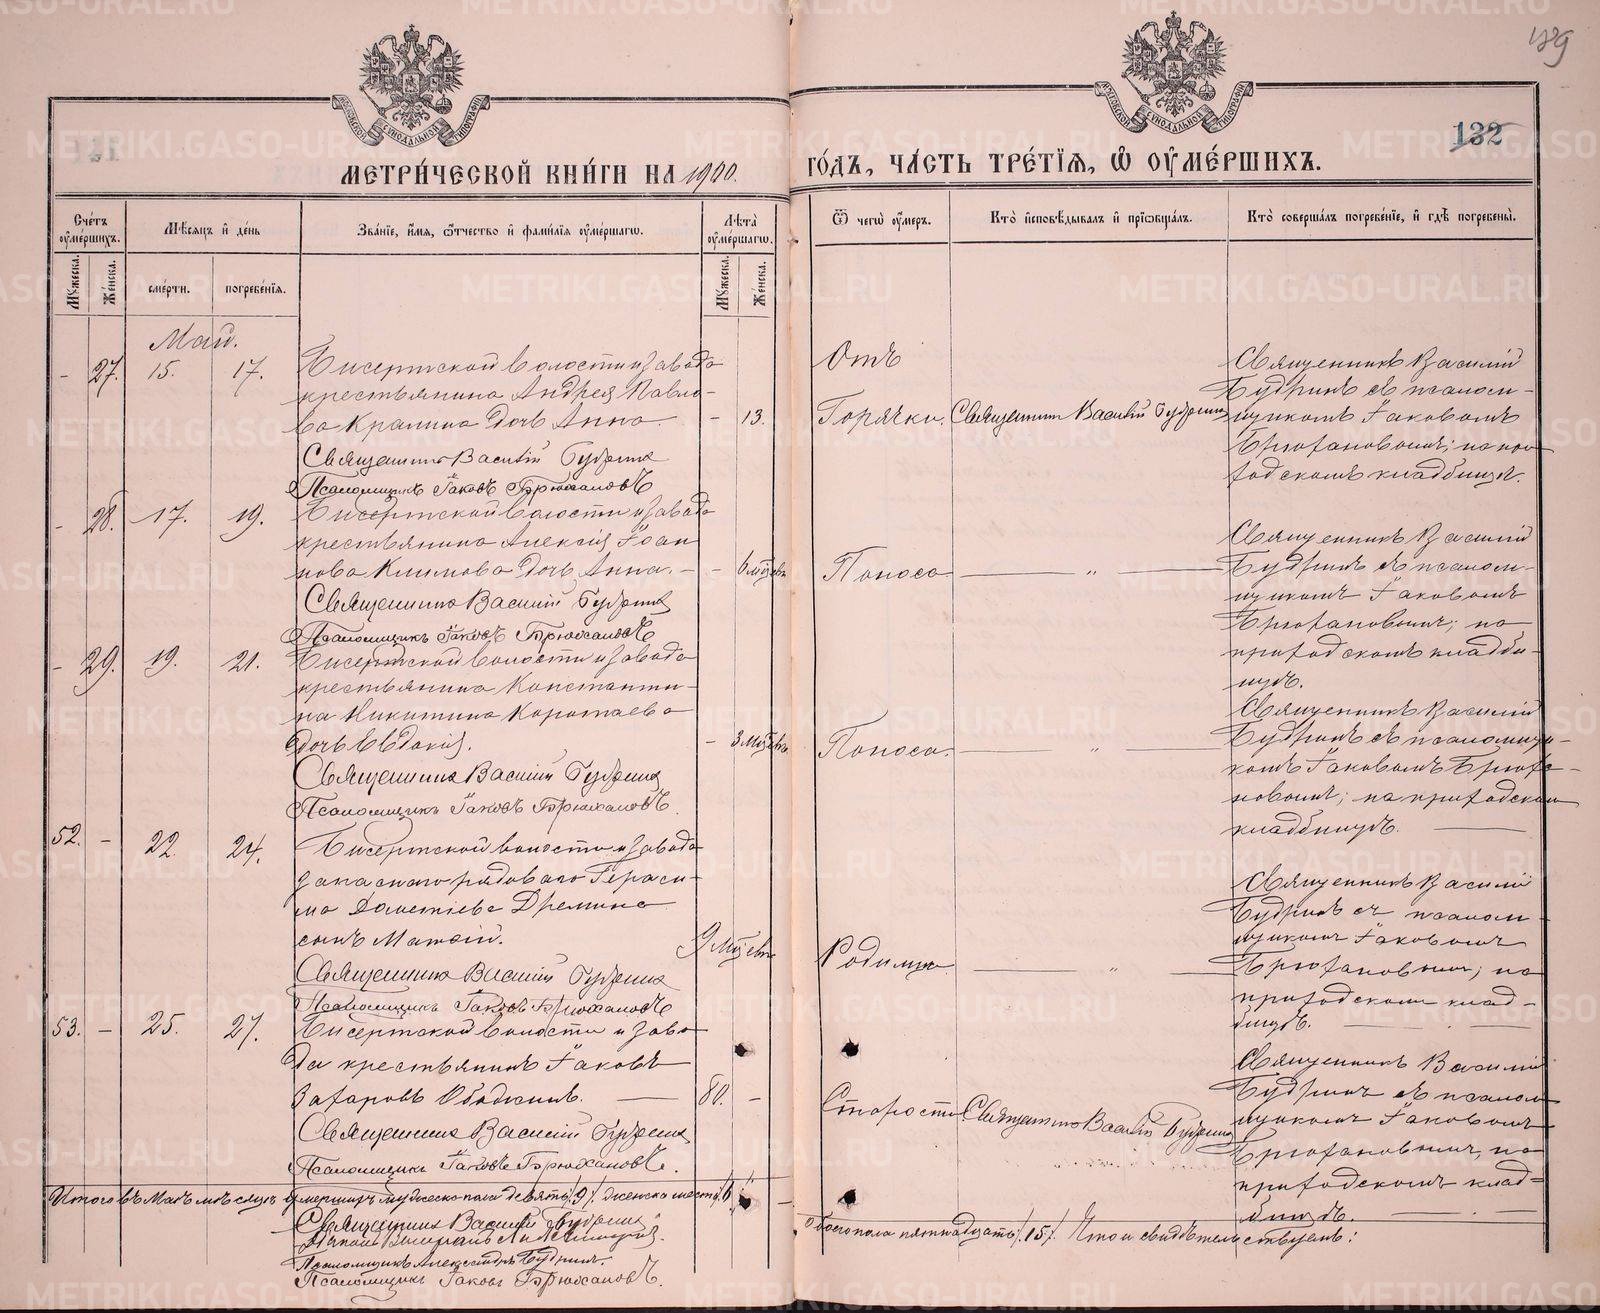 189
132
МЕТРИ́ЧЕСКОЙ КНИ́ГИ НА 1900.
ГО́ДЪ, ЧА́СТЬ ТРЕ́ТІѦ, Ѡ҆ ОУ҆МЕ́РШИХЪ.
Сче́тъ оу҆ме́ршихъ.
Мѣ́сѧцъ и҆ де́нь
Зва́нїе, и҆́мѧ, ѻ҆́тчество и҆ фами́лїѧ оу҆ме́ршагѡ.
Лѣ́та оу҆ме́ршагѡ.
Ѿ чегѡ̀ оу҆́меръ.
Кто̀ и҆сповѣ́дывалъ и҆ прїѡбща́лъ.
Кто̀ соверша́лъ погребе́нїе, и҆ гдѣ̀ погребены̀.
Му́жеска.
Же́нска.
сме́рти.
погребе́нїѧ.
Му́жеска.
Же́нска.
Май.
- 27. 15. 17.
Бисертской волости и завода
крестьянина Андрея Павло-
ва Кралина дочь Анна. - 13.
Священникъ Василій Будринъ
Псаломщикъ Іаковъ Брюхановъ
Отъ
Горячки. Священникъ Василій Будринъ
Священникъ Василій
Будринъ съ псалом-
щикомъ Іаковомъ
Брюхановымъ; на при-
ходскомъ кладбищѣ.
- 28. 17. 19.
Бисертской волости и завода
крестьянина Алексія Іоан
нова Климова дочь Анна. - - 6 мѣсяцевъ
Священникъ Василій Будринъ
Псаломщикъ Іаковъ Брюхановъ
Поноса. — " —
Священникъ Василій
Будринъ съ псалом-
щикомъ Іаковомъ
Брюхановымъ; на
приходскомъ кладби-
щѣ.
- 29. 19. 21.
Бисертской волости и завода
крестьянина Константи-
на Никитина Коротаева
дочь Евдокія. - 3 мѣсяцевъ
Священникъ Василій Будринъ
Псаломщикъ Іаковъ Брюхановъ.
Поноса. — " —
Священникъ Василій
Будринъ съ псаломщи-
комъ Іаковомъ Брюха-
новымъ; на приходскомъ
кладбищѣ. —
52. - 22. 24.
Бисертской волости и завода
запаснаго рядоваго Гераси-
ма Дометіева Дремина
сынъ Матѳій. 9 мѣсяцевъ
Священникъ Василій Будринъ
Псаломщикъ Іаковъ Брюхановъ
Родимца — " —
Священникъ Василій
Будринъ съ псалом-
щикомъ Іаковомъ
Брюхановымъ; на
приходскомъ клад-
бищѣ. — —
53. - 25. 27.
Бисертской волости и заво-
да крестьянинъ Іаковъ
Захаровъ Ободкинъ. — 80. -
Священникъ Василій Будринъ
Псаломщикъ Іаковъ Брюхановъ.
Старости. Священникъ Василій Будринъ
Священникъ Василій
Будринъ съ псалом
щикомъ Іаковомъ
Брюхановымъ, на
приходскомъ клад-
бищѣ. — —
Итого въ Маѣ мѣсяцѣ умершихъ мужеска пола девять /9/ женска шесть /6/
обоего пола пятнадцать /15/. Что и свидѣтельствуемъ:
Священникъ Василій Будринъ
Псаломщикъ Александръ Будринъ.
Псаломщикъ Іаковъ Брюхановъ.